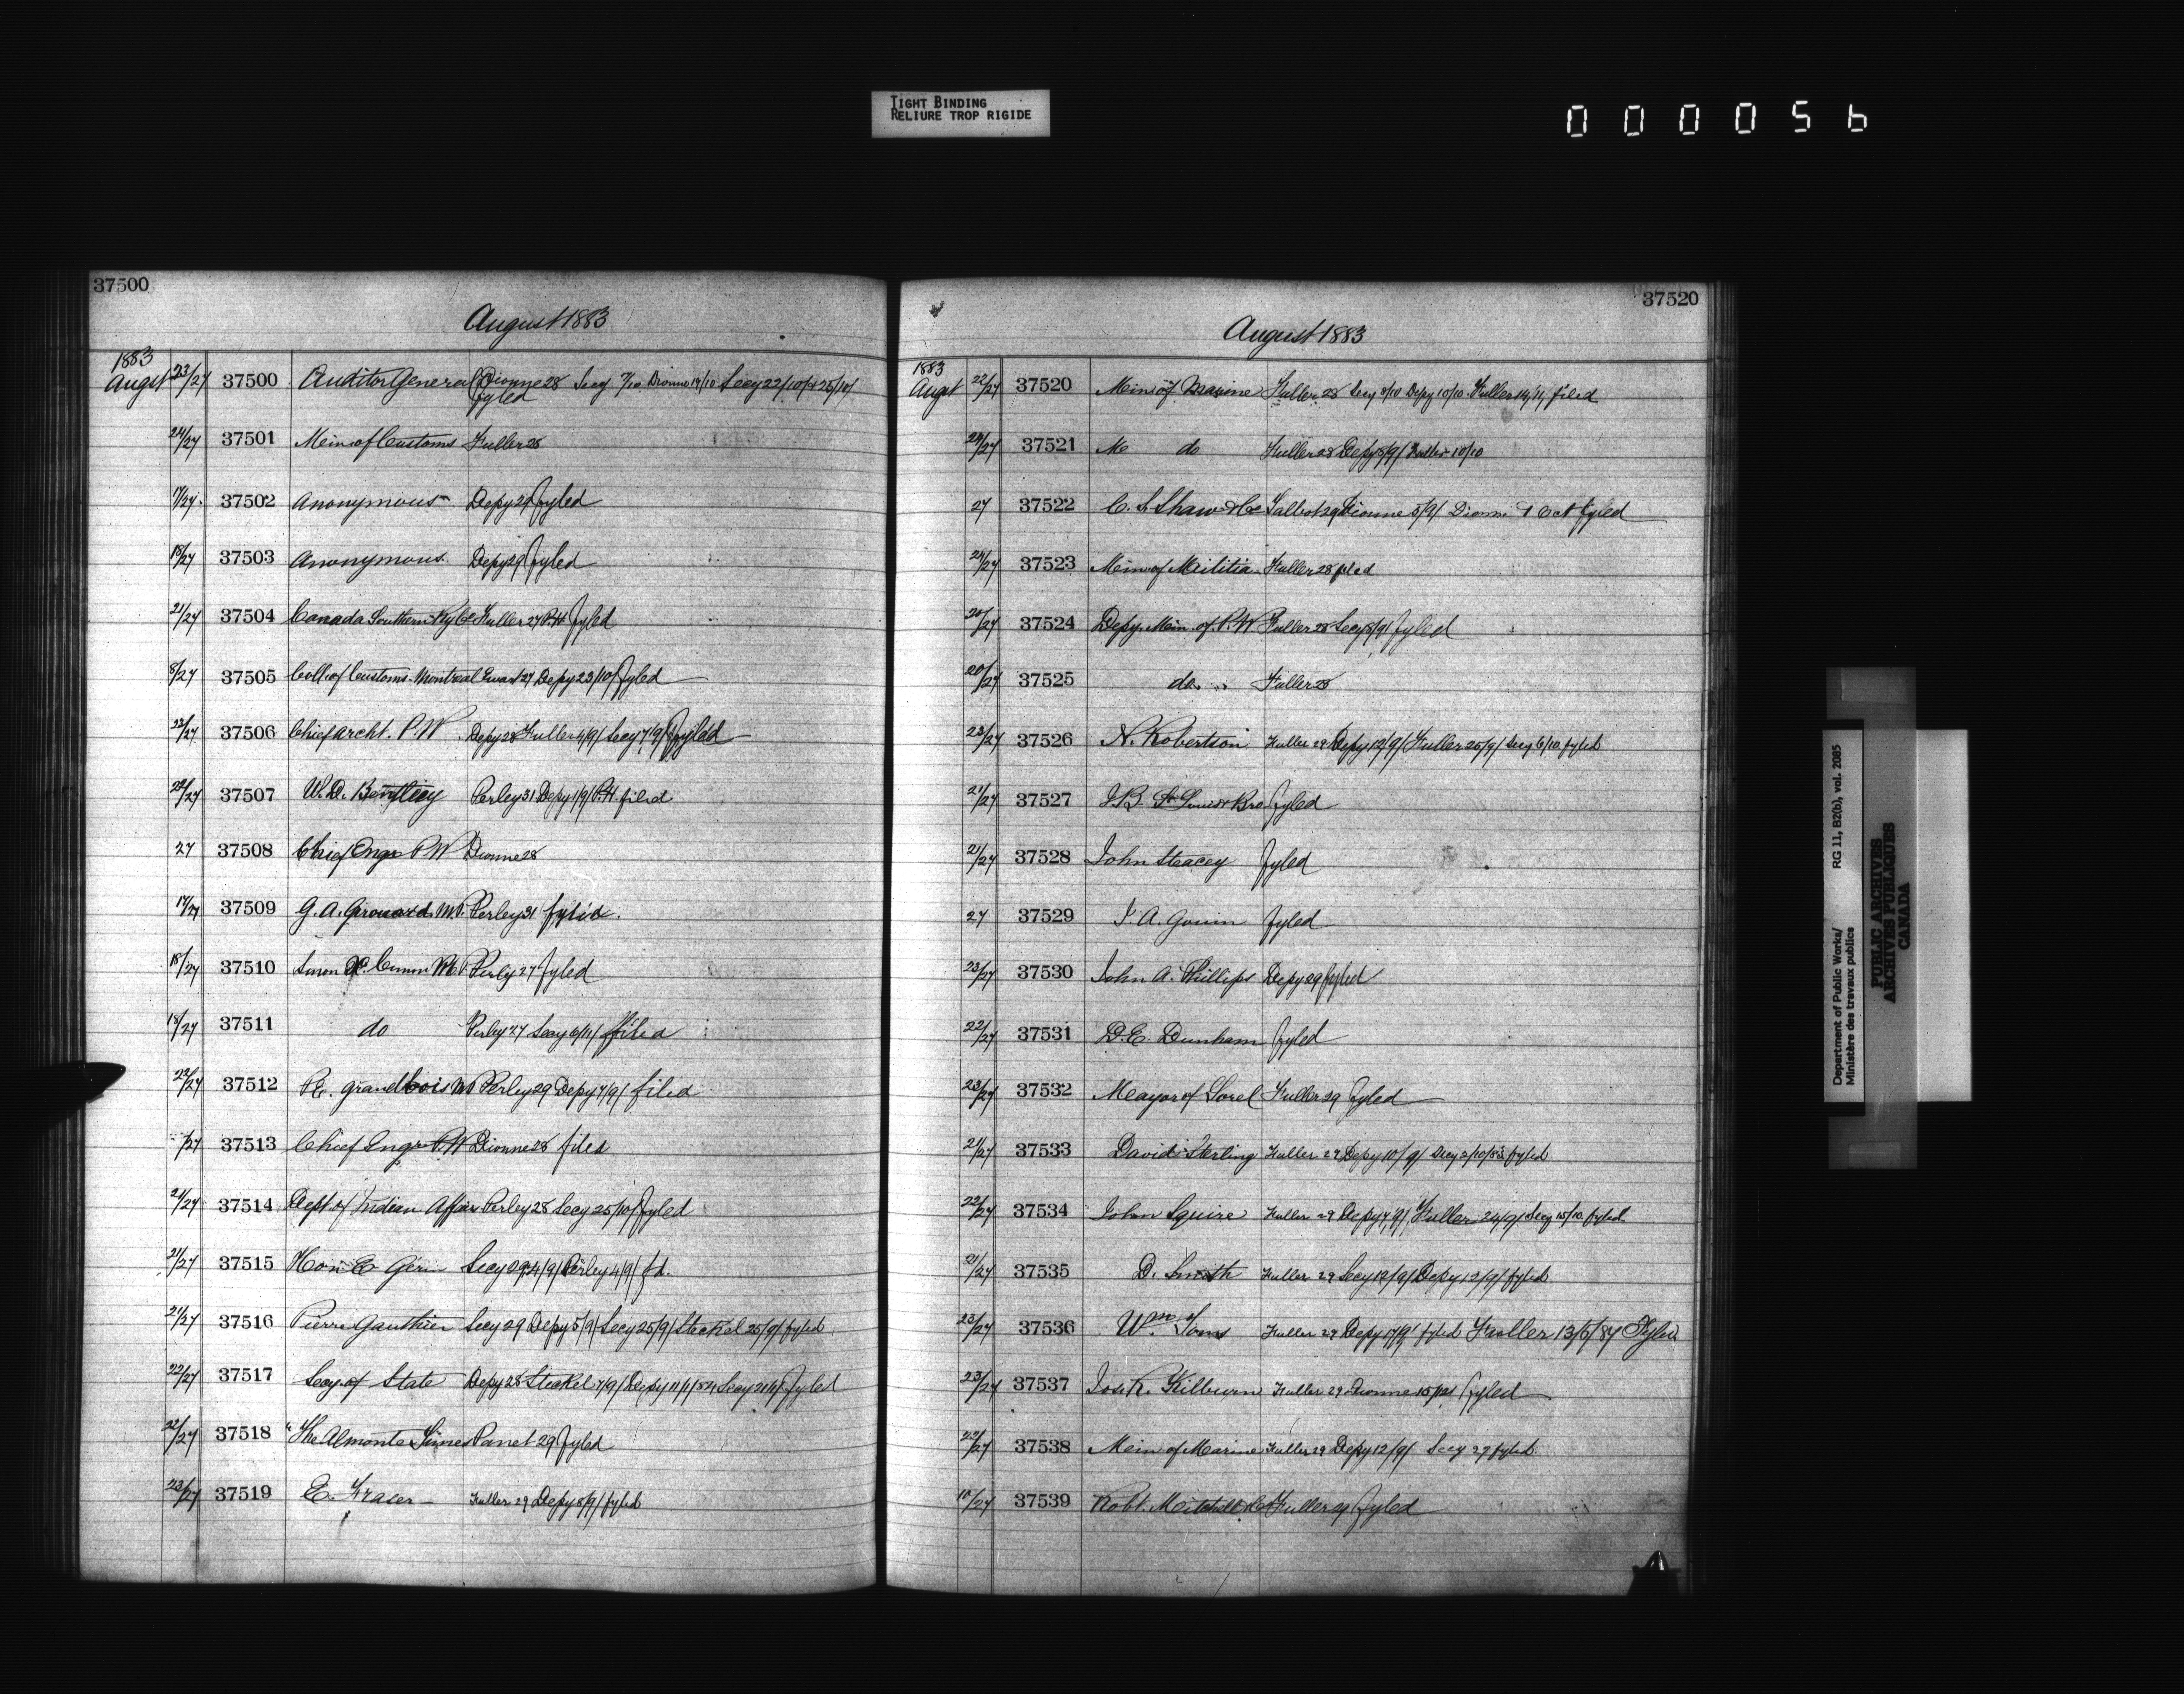 TIGHT BINDING
RELIURE TROP RIGIDE
0 0 0 0 5 6
37500
August 1883
1883
Augst 23/27 37500 Auditor General Dionne 28 Secy 7/10 Dionne 19/10 Secy 22/10/ 25/10/
fyled
24/27 37501 Min of Customs Fuller 28
17/27 37502 Anonymous Depy 29 fyled
18/27 37503 Anonymous Depy 29 fyled
21/27 37504 Canada Southern Ry Co Fuller 27 P.H fyled
8/27 37505 Coll. of Customs Montreal Ewart 27 Depy 23/10/ fyled
22/27 37506 Chief Archt. P.W Depy 28 Fuller 4/9/ Secy 7/9/ fyled
22/27 37507 W.D. Perley 31 Depy 1/9/ P.H. filed
27 37508 Chief Engr P W Dionne 28
17/27 37509 G. A. Girouard. M.P. Perley 31 fyled.
18/27 37510 Perley 27 fyled
18/27 37511 do Perley 27 Secy filed
22/27 37512 P.E. Grandbois MP Perley 29 Depy 7/9/ filed
/27 37513 Chief Engr P.W Dionne 28 filed
21/27 37514 Dept of Indian Affairs Perley 28 Secy 25/10/ fyled
21/27 37515 Hon E Secy 29 4/9/ Perley 4/9/ fd.
21/27 37516 Pierre Gauthier Secy 29 Depy 5/9/ Secy 25/9/ Steckel 25/9/ fyled
22/27 37517 Secy of State Depy 28 Steckel 7/9/ Depy 11/1/84 Secy fyled
22/27 37518 "The Almonte Times Panet 29 fyled
22/27 37519 E. Fraser Fuller 29 Depy 8/9/ fyled
37520
August 1883
1883
Augst 22/27 37520 Min of Marine Fuller 28 Secy 8/10 Depy 10/10 Fuller filed
24/27 37521 M do Fuller 28 Depy 8/9/ Fuller 10/10
27 37522 C. S. Shaw & Co Talbot 29 Dionne 5/9/ Dionne Oct fyled
24/27 37523 Min of Militia Fuller 28 filed
20/27 37524 Depy. Min. of. P.W Fuller 28 Secy 8/9/ fyled
20/27 37525 do Fuller 28
23/27 37526 N. Robertson Fuller 29 Depy 12/9/ Fuller 25/9/ Secy 6/10 fyled
21/27 37527 J.B. St Louis & Bro fyled
21/27 37528 John Steacey fyled
27 37529 J. A. Gouin fyled
23/27 37530 John A. Phillips Depy 29 fyled
22/27 37531 D.E. Dunham fyled
23/27 37532 Mayor of Sorel Fuller 29 fyled
21/27 37533 David Sterling Fuller 29 Depy 10/9/ Secy 2/10/83 fyled
22/27 37534 John Squire Fuller 29 Depy 4/9/ Fuller 24/9/ Secy 15/10 fyled
21/27 37535 D. Smith Fuller 29 Secy 12/9/ Depy 12/9/ fyled
23/27 37536 Wm. Toms Fuller 29 Depy fyled Fuller 13/5/87 Fyled
23/27 37537 Jos. R. Kilburn Fuller 29 Dionne fyled
22/27 37538 Min of Marine Fuller 29 Depy 12/9/ Secy 27 fyled
10/27 37539 Robt. Mitchell & Co Fuller 29 fyled
Department of Public Works/ RG 11, B2(b), vol. 2085
Ministère des travaux publics
PUBLIC ARCHIVES
ARCHIVES PUBLIQUES
CANADA